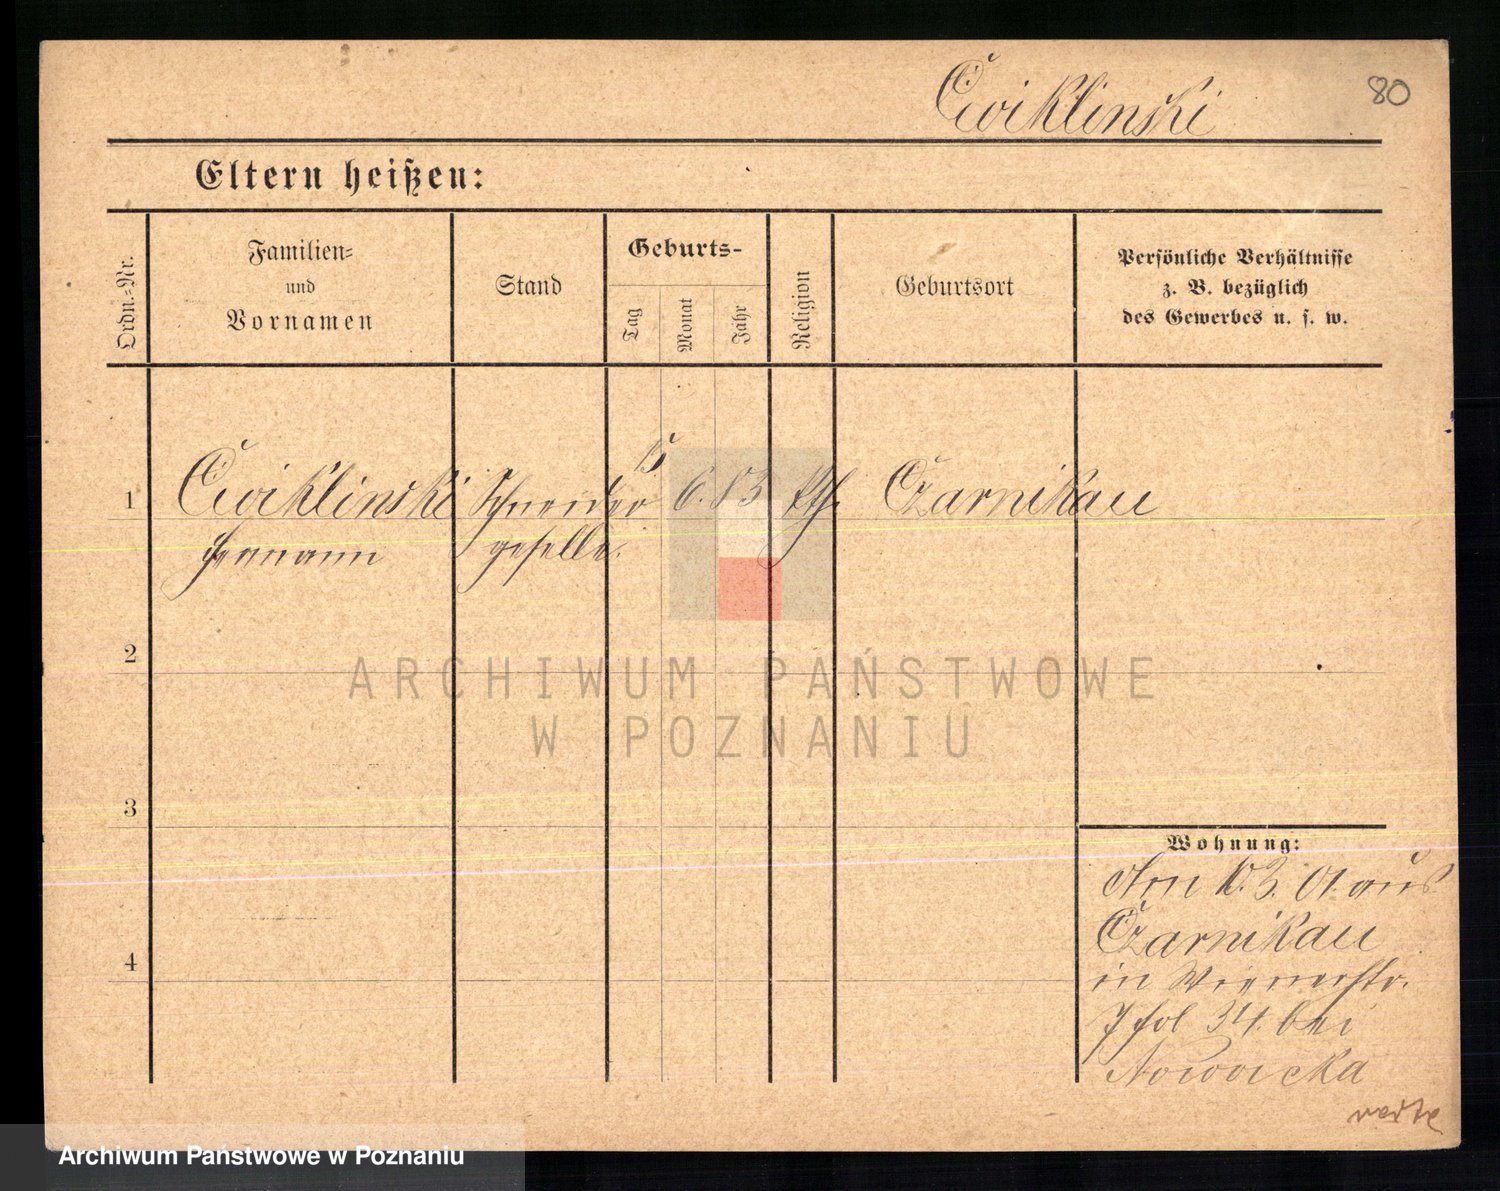 Cwiklinski
80
Eltern heißen:
Ordn.-Nr.
Familien-
und
Vornamen
Stand
Geburts-
Tag
Monat
Jahr
Religion
Geburtsort
Persönliche Verhältnisse
z. B. bezüglich
des Gewerbes u. s. w.
1
Cwiklinski
Hermann
Schneider
geselle.
15
6. 83
kth.
Czarnikau
2
ARCHIWUM PAŃSTWOWE
W POZNANIU
3
4
Wohnung:
Am 10.3.01. aus
Czarnikau
in Wienerstr.
34. bei
Nowicka
verte
Archiwum Państwowe w Poznaniu